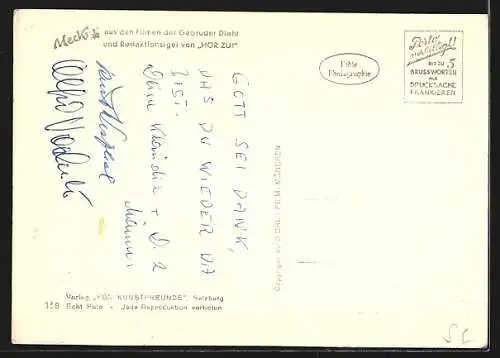 Mecki aus den Filmen der Gebrüder Diehl
und Redaktionsigel von „HÖR ZU!"
Echte
Photographie
Porto
ermäßigt!
BIS ZU 5
GRUSSWORTEN
ALS
DRUCKSACHE
FRANKIEREN
GOTT SEI DANK,
DAS DU WIEDER DA
BIST.
Deine Klaudia +
Männer
Copyright by DIEHL-FILM, MÜNCHEN
Verlag „FÜR KUNSTFREUNDE" Salzburg
158 Echt Foto • Jede Reproduktion verboten